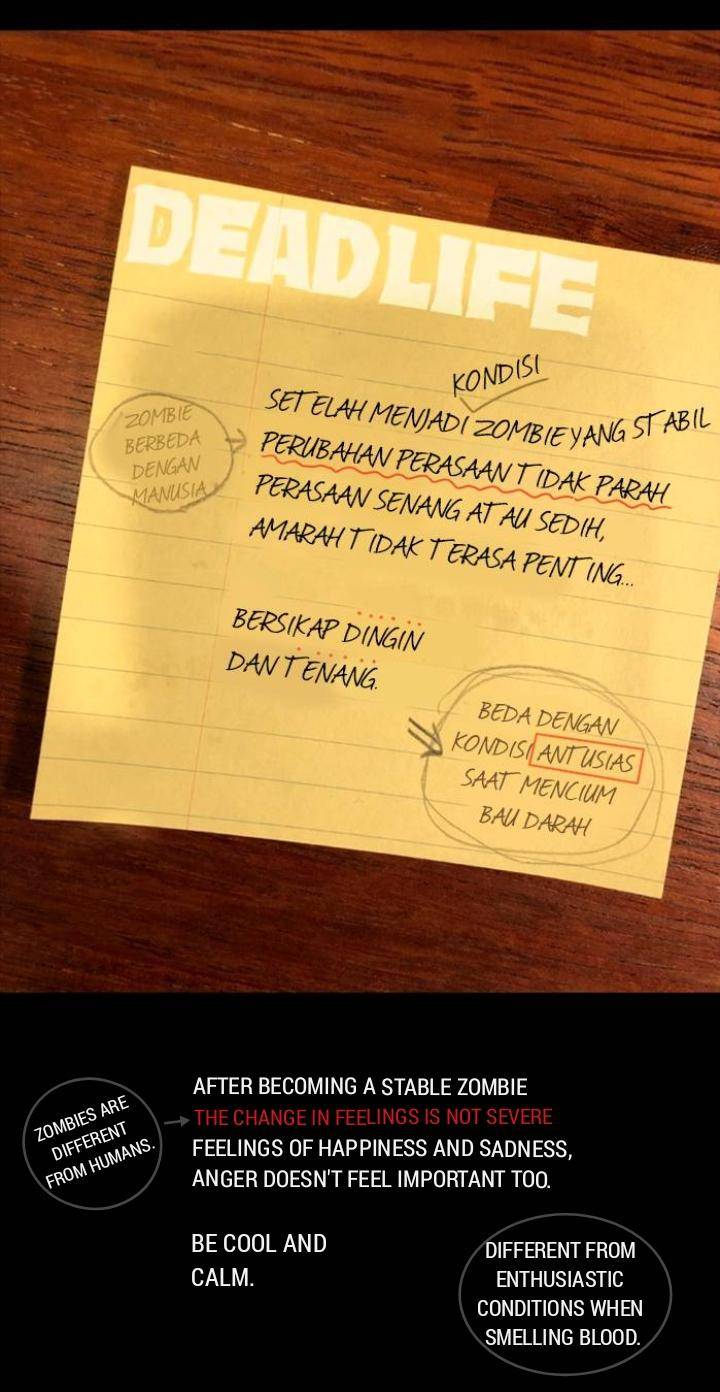 DEADLIFE
KONDISI
SETELAH MENJADI ZOMBIE YANG STABIL
PERUBAHAN PERASAAN TIDAK PARAH
PERASAAN SENANG ATAU SEDIH,
AMARAH TIDAK TERASA PENTING...
ZOMBIE
BERBEDA
DENGAN
MANUSIA
BERSIKAP DINGIN
DAN TENANG.
BEDA DENGAN
KONDISI ANTUSIAS
SAAT MENCIUM
BAU DARAH
ZOMBIES ARE
DIFFERENT
FROM HUMANS.
AFTER BECOMING A STABLE ZOMBIE
THE CHANGE IN FEELINGS IS NOT SEVERE
FEELINGS OF HAPPINESS AND SADNESS,
ANGER DOESN'T FEEL IMPORTANT TOO.
BE COOL AND
CALM.
DIFFERENT FROM
ENTHUSIASTIC
CONDITIONS WHEN
SMELLING BLOOD.